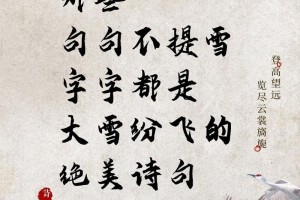 句句不提雪
字字都是
大雪纷飞的
绝美诗句
登高望远
览尽云裳旖旎